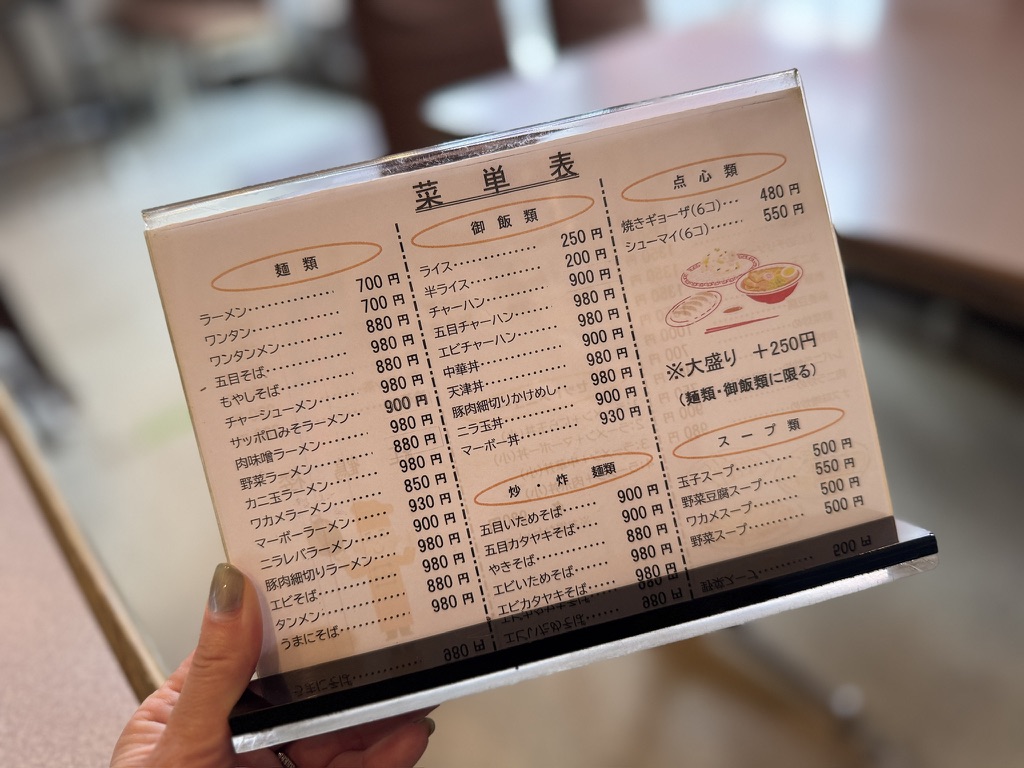 菜単表
麺類
ラーメン 700円
ワンタン 700円
ワンタンメン 880円
五目そば 980円
もやしそば 880円
チャーシューメン 980円
サッポロみそラーメン 900円
肉味噌ラーメン 980円
野菜ラーメン 880円
カニ玉ラーメン 980円
ワカメラーメン 850円
マーボーラーメン 930円
ニラレバラーメン 900円
豚肉細切りラーメン 980円
エビそば 980円
タンメン 880円
うまにそば 980円
御飯類
ライス 250円
半ライス 200円
チャーハン 900円
五目チャーハン 980円
エビチャーハン 980円
中華丼 900円
天津丼 980円
豚肉細切りかけめし 980円
ニラ玉丼 900円
マーボー丼 930円
炒・炸 麺類
五目いためそば 900円
五目カタヤキそば 900円
やきそば 880円
エビいためそば 980円
エビカタヤキそば 980円
点心類
焼きギョーザ(6コ) 480円
シューマイ(6コ) 550円
※大盛り +250円
(麺類・御飯類に限る)
スープ類
玉子スープ 500円
野菜豆腐スープ 550円
ワカメスープ 500円
野菜スープ 500円